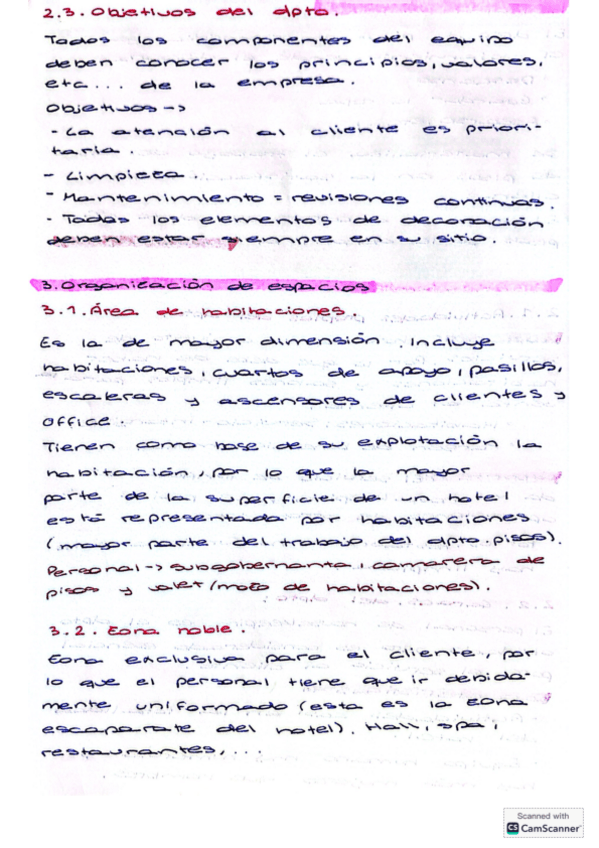 2.3. Objetivos del dpto.
Todos los componentes del equipo
deben conocer los principios, valores,
etc... de la empresa.
Objetivos ->
- La atención al cliente es priori-
taria.
- Limpieza.
- Mantenimiento = revisiones continuas.
- Todos los elementos de decoración
deben estar siempre en su sitio.
3. Organización de espacios
3.1. Área de habitaciones.
Es la de mayor dimensión. Incluye
habitaciones, cuartos de apoyo, pasillos,
escaleras y ascensores de clientes y
office.
Tienen como base de su explotación la
habitación, por lo que la mayor
parte de la superficie de un hotel
está representada por habitaciones
(mayor parte del trabajo del dpto. pisos).
Personal -> subgobernanta, camarera de
pisos y valet (mozo de habitaciones).
3.2. Zona noble.
Zona exclusiva para el cliente, por
lo que el personal tiene que ir debida-
mente uniformado (esta es la zona
escaparate del hotel). Hall, spa,
restaurantes,...
Scanned with
CS CamScanner